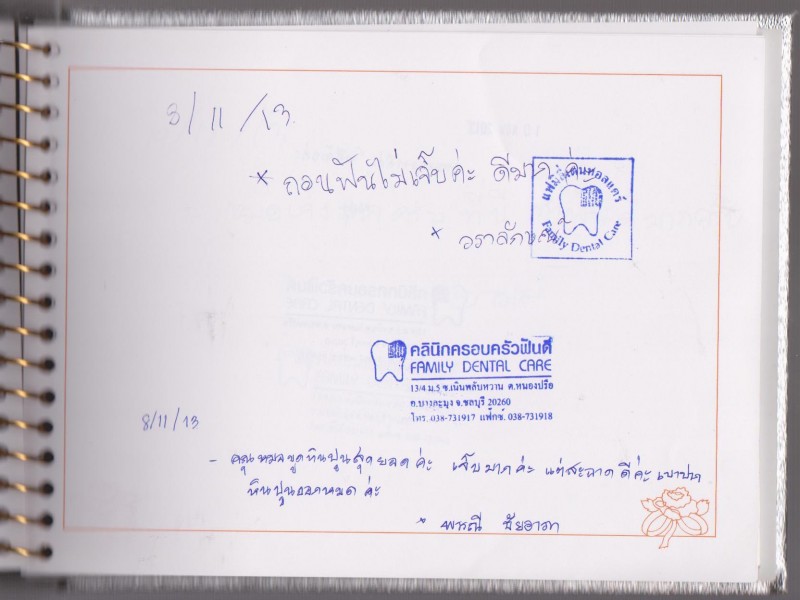 8/11/13.
* ถอนฟันไม่เจ็บค่ะ ดีมาก ค่ะ
แฟมิลี่เดนทอลแคร์
Family Dental Care
* วราลักษณ์
คลินิกครอบครัวฟันดี
FAMILY DENTAL CARE
13/4 ม.5 ซ.เนินพลับหวาน ต.หนองปรือ
อ.บางละมุง จ.ชลบุรี 20260
โทร. 038-731917 แฟ็กซ์. 038-731918
8/11/13
- คุณหมอขูดหินปูนสุดยอดค่ะ เจ็บมากค่ะ แต่สะอาดดีค่ะ เบาปาก
หินปูนออกหมดค่ะ
* พารณี ชัยอาภา